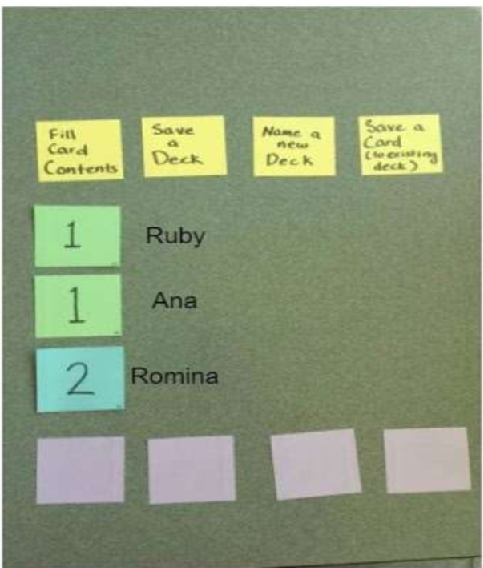 Fill
Card
Contents
Save
a
Deck
Name a
new
Deck
Save a
Card
(to existing
deck)
1
Ruby
1
Ana
2
Romina